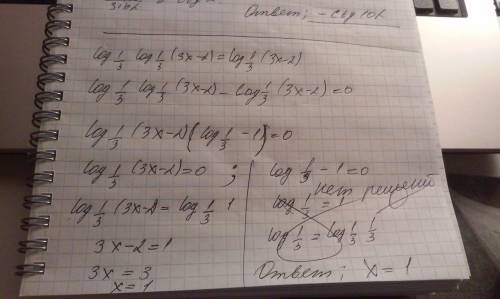 Ответ: - ctg 10α
log 1/3 log 1/3 (3x-2) = log 1/3 (3x-2)
log 1/3 log 1/3 (3x-2) - log 1/3 (3x-2) = 0
log 1/3 (3x-2) (log 1/3 - 1) = 0
log 1/3 (3x-2) = 0 ;
log 1/3 (3x-2) = log 1/3 1
3x-2 = 1
3x = 3
x = 1
log 1/3 - 1 = 0
нет решений
log 1/3 = 1
log 1/3 = log 1/3 1/3
Ответ: x = 1